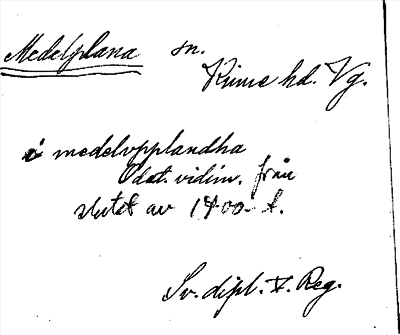 Medelplana sn.
Kinne hd. Vg.
i medelvpplandha
Odat. vidim. från
slutet av 1400-t.
Sv. dipl. I. Reg.